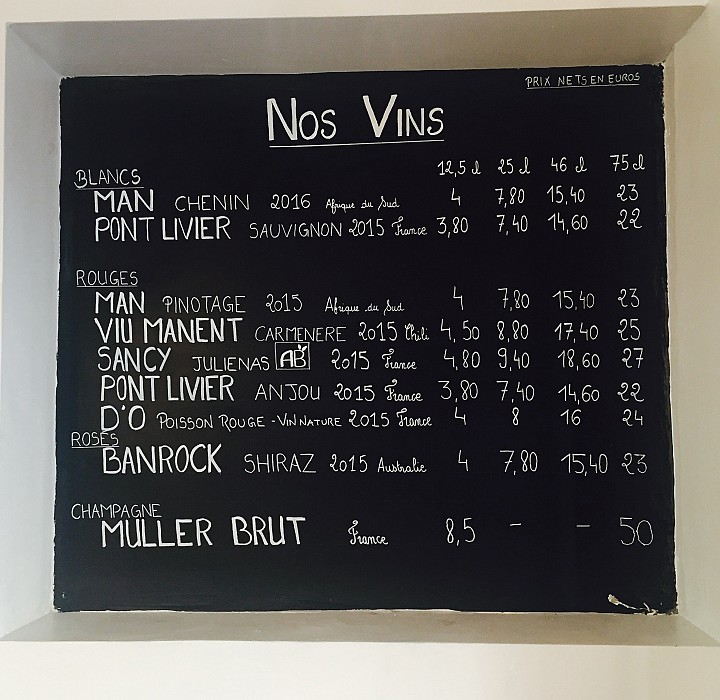 PRIX NETS EN EUROS
NOS VINS
12,5 cl 25 cl 46 cl 75 cl
BLANCS
MAN CHENIN 2016 Afrique du Sud 4 7,80 15,40 23
PONT LIVIER SAUVIGNON 2015 France 3,80 7,40 14,60 22
ROUGES
MAN PINOTAGE 2015 Afrique du Sud 4 7,80 15,40 23
VIU MANENT CARMENERE 2015 Chili 4,50 8,80 17,40 25
SANCY JULIENAS AB 2015 France 4,80 9,40 18,60 27
PONT LIVIER ANJOU 2015 France 3,80 7,40 14,60 22
D'O POISSON ROUGE - VIN NATURE 2015 France 4 8 16 24
ROSÉS
BANROCK SHIRAZ 2015 Australie 4 7,80 15,40 23
CHAMPAGNE
MULLER BRUT France 8,5 - - 50